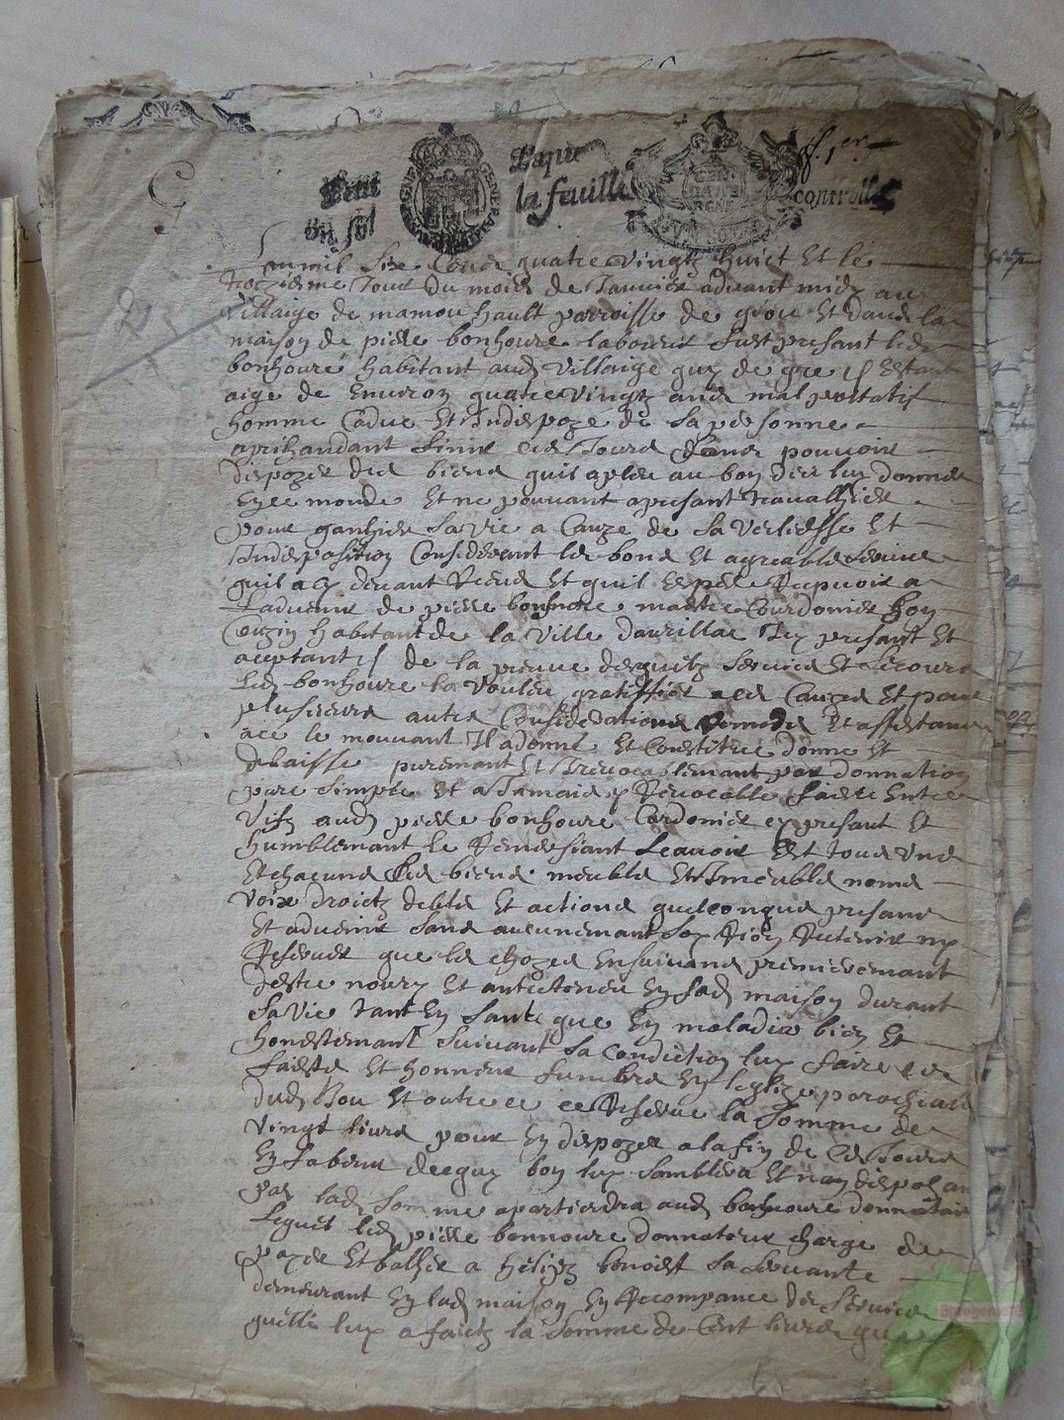 Petit Papier f. 1er
un sol la feuille controllé
GENERAL
L'an mil six cens quatre vingtz huict et le
troiziesme jour du mois de janvier advant midy au
villaige de mamou hault parroisse de giou et dans la
maison de pierre bonhoure laboureur fust presant led
bonhoure habitant aud villaige quy de gre estant
aige de environ quatre vingtz ans mal
homme caduc et indispoze de sa personne
aprehandant finir ces jours sans pouvoir
dispozer des biens quil a pleu au bon dieu luy donner
en ce monde et ne pouvant a presant travalhier
pour ganhier sa vie a cauze de sa viellesse et
indisposition considerant les bons et agreables services
quil a cy devant receus et quil espere recepvoir a
ladvenir de pierre bonhoure maitre courdonier son
couzin habitant de la ville daurillac icy presant et
aceptant de la preuve desquelz services et secours
led bonhoure la voulleu gratiffier a ces cauzes et pour
plusieurs autres considerations
ace le mouvant Il a donné et constitue donne et
delaisse puremant et Irrevocablemant par donnation
pure simple et a jamais Revocable faicte entre
vifz aud pierre bonhoure cordonier presant et
humblemant le Remersiant scavoir est tous uns
et chacuns ces biens meubles et Immeubles noms
voix droictz debtes et actions quelconques presans
et advenir sans aucunemant Rien Retenir ny
Reserver que les chozes ensuivans premieremant
destre noury et antretenu en sad maison durant
sa vie tant en sante que en maladie bien et
honestemant suivant sa condiction luy faire ces
et honneurs funebres en leglize parochialle
dud giou et outre ce ce Reserve la somme de
vingt livres pour en dispozer a la fin de ces jours
en faveur de quy bon luy samblera et nen dispozant
pas lad somme apartiendra aud bonhoure donnataire
lequel led pierre bonnoure donnateur charge de
payer et balhier a helips benoist sa servante
demeurant en lad maison en Recompance des services
quelle luy a faictz la somme de cent livres que